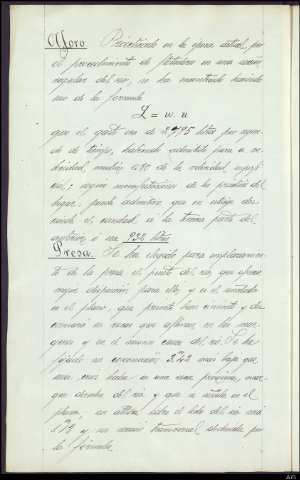 Aforo. Practicado en la época actual, por
el procedimiento de flotadores en una zona
regular del río, se ha encontrado haciendo
uso de la fórmula
L = w u
que el gasto era de 2795 litros por segun-
do de tiempo, habiendo admitido para u ve-
locidad media, 0,80 de la velocidad superfi-
cial; según manifestaciones de los prácticos del
lugar, puede admitirse que en estiaje des-
ciende el caudal a la tercera parte del
anterior, o sea 932 litros.
Presa. Se ha elegido para emplazamien-
to de la presa el punto del río, que ofrece
mejor disposición para ello, y es el señalado
en el plano, que presenta buen cimiento y des-
cansará en rocas que afloran en las már-
genes y en el mismo cauce del río. Se ha
fijado su coronación 3,42 más baja que
una cruz hecha en una roca próxima, mar-
gen derecha del río y que se señala en el
plano, su altura sobre el lecho del río será
de 1,75 y su sección transversal, obtenida por
la fórmula